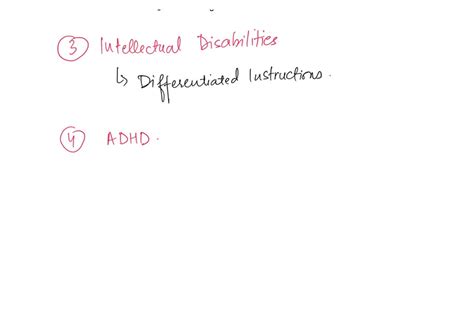 ③ Intellectual Disabilities
↳ Differentiated Instructions.
④ ADHD.